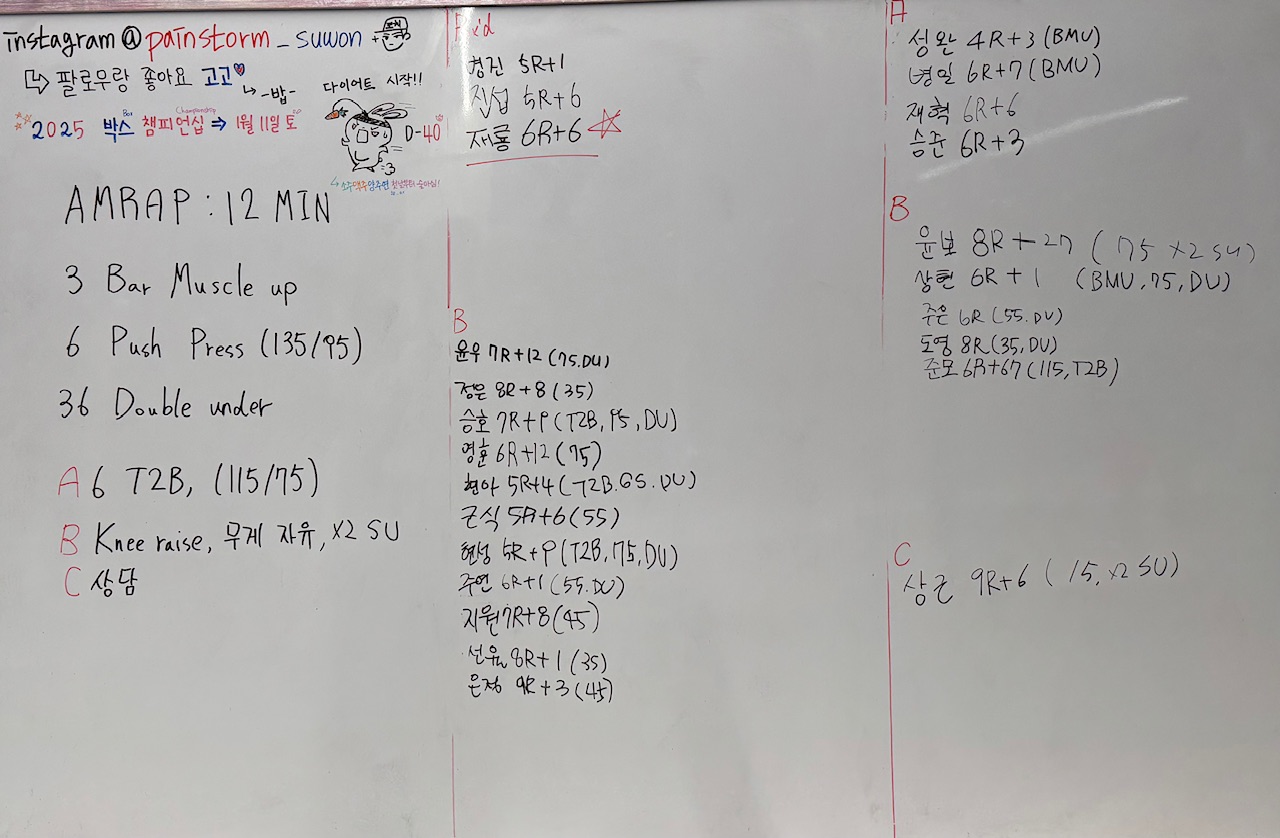 instagram @ painstorm _ suwon
↳ 팔로우랑 좋아요 고고♥
↳ -밥-
다이어트 시작!!
Box Championship
2025 박스 챔피언십 ⇒ 1월 11일 토
D-40
AMRAP : 12 MIN
3 Bar Muscle up
6 Push Press (135/95)
36 Double under
A 6 T2B, (115/75)
B Knee raise, 무게 자유, x2 SU
C 상담
Rx'd
경진 5R+1
진섭 5R+6
재룡 6R+6 ☆
B
윤우 7R+12 (75.DU)
정은 8R+8 (35)
승호 7R+9 (T2B, 95, DU)
영훈 6R+12 (75)
현아 5R+4 (T2B.65.DU)
근식 5R+6 (55)
현성 5R+9 (T2B, 75, DU)
주연 6R+1 (55.DU)
지원 7R+8 (45)
선유 8R+1 (35)
은정 9R+3 (45)
A
성완 4R+3 (BMU)
병일 6R+7 (BMU)
재혁 6R+6
승준 6R+3
B
윤보 8R+27 (75 x2 SU)
상현 6R+1 (BMU, 75, DU)
주은 6R (55.DU)
도영 8R (35, DU)
준모 6R+67 (115, T2B)
C
상근 9R+6 (15, x2 SU)